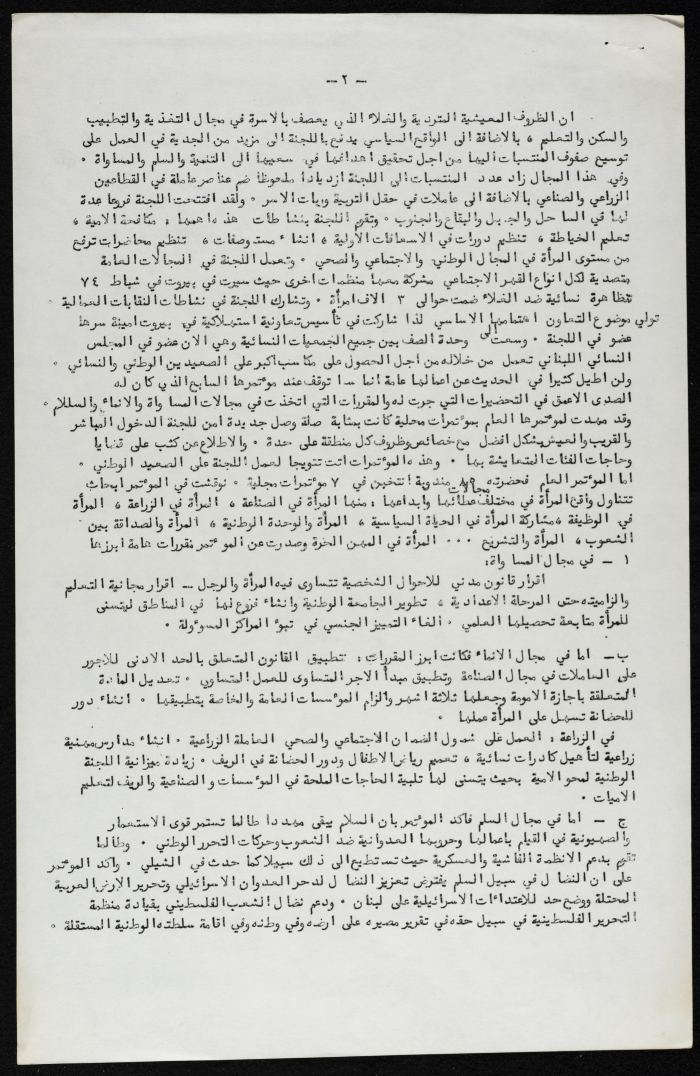 — ٢ —
ان الظروف المعيشية المتردية والغلاء الذي يعصف بالاسرة في مجال التغذية والتطبيب
والسكن والتعليم ، بالاضافة الى الواقع السياسي يدفع باللجنة الى مزيد من الجدية في العمل على
توسيع صفوف المنتسبات اليها من اجل تحقيق اهدافها في سعيها الى التنمية والسلم والمساواة ٠
وفي هذا المجال زاد عدد المنتسبات الى اللجنة ازديادا ملحوظا ضم عناصر عاملة في القطاعين
الزراعي والصناعي بالاضافة الى عاملات في حقل التربية وربات الاسر ٠ ولقد افتتحت اللجنة فروعا عدة
لها في الساحل والجبل والبقاع والجنوب ٠ وتقوم اللجنة بنشاطات هذه اهمها : مكافحة الامية ،
تعليم الخياطة ، تنظيم دورات في الاسعافات الأولية ، انشاء مستوصفات ، تنظيم محاضرات ترفع
من مستوى المرأة في المجال الوطني والاجتماعي والصحي ٠ وتعمل اللجنة في المجالات العامة
متصدية لكل انواع القهر الاجتماعي مشركة معها منظمات اخرى حيث سيرت في بيروت في شباط ٧٤
تظاهرة نسائية ضد الغلاء ضمت حوالى ٣ الاف امرأة ٠ وتشارك اللجنة في نشاطات النقابات العمالية ٠
تولي موضوع التعاون اهتمامها الاساسي لذا شاركت في تأسيس تعاونية استهلاكية في بيروت امينة سرها
عضو في اللجنة ٠ وسعت الى وحدة الصف بين جميع الجمعيات النسائية وهي الان عضو في المجلس
النسائي اللبناني تعمل من خلاله من اجل الحصول على مكاسب اكبر على الصعيدين الوطني والنسائي ٠
ولن اطيل كثيرا في الحديث عن اعمالها عامة انما سا توقف عند مؤتمرها السابع الذي كان له
الصدى الاعمق في التحضيرات التي جرت له والمقررات التي اتخذت في مجالات المساواة والانماء والسلام ٠
وقد مهدت لمؤتمرها العام بمؤتمرات محلية كانت بمثابة صلة وصل جديدة امن للجنة الدخول المباشر
والقريب والعيش بشكل افضل مع خصائص وظروف كل منطقة على حدة ٠ والاطلاع عن كثب على قضايا
وحاجات الفئات المتعايشة بها ٠ وهذه المؤتمرات اتت تتويجا لعمل اللجنة على الصعيد الوطني ٠
اما المؤتمر العام فحضرته ٨٩ مندوبة انتخبن في ٧ مؤتمرات محلية ٠ نوقشت في المؤتمر ابحاث
تتناول واقع المرأة في مختلف مجالات عطائها وابداعها : منها المرأة في الصناعة ، المرأة في الزراعة ، المرأة
في الوظيفة ، مشاركة المرأة في الحياة السياسية ، المرأة والوحدة الوطنية ، المرأة والصداقة بين
الشعوب ، المرأة والتشريع ٠٠٠ المرأة في المهن الحرة وصدرت عن المؤتمر مقررات هامة ابرزها
١ — في مجال المساواة :
اقرار قانون مدني للاحوال الشخصية تتساوى فيه المرأة والرجل — اقرار مجانية التعليم
والزاميته حتى المرحلة الاعدادية ، تطوير الجامعة الوطنية وانشاء فروع لها في المناطق ليتسنى
للمرأة متابعة تحصيلها العلمي ٠ الغاء التمييز الجنسي في تبوء المراكز المسؤولة ٠
ب — اما في مجال الانماء فكانت ابرز المقررات : تطبيق القانون المتعلق بالحد الادنى للاجور
على العاملات في مجال الصناعة وتطبيق مبدأ الاجر المتساوى للعمل المتساوى ٠ تعديل المادة
المتعلقة باجازة الامومة وجعلها ثلاثة اشهر والزام المؤسسات العامة والخاصة بتطبيقها ٠ انشاء دور
للحضانة تسهل على المرأة عملها ٠
في الزراعة : العمل على شمول الضمان الاجتماعي والصحي العاملة الزراعية ٠ انشاء مدارس مهنية
زراعية لتأهيل كادرات نسائية ، تعميم رياض الاطفال ودور الحضانة في الريف ٠ زيادة ميزانية اللجنة
الوطنية لمحو الامية بحيث يتسنى لها تلبية الحاجات الملحة في المؤسسات و الصناعية والريف لتعليم
الاميات ٠
ج — اما في مجال السلم فاكد المؤتمر بان السلام يبقى مهددا طالما تستمر قوى الاستعمار
والصهيونية في القيام باعمالها وحروبها العدوانية ضد الشعوب وحركات التحرر الوطني ٠ وطالما
تقوم بدعم الانظمة الفاشية والعسكرية حيث تستطيع الى ذلك سبيلا كما حدث في الشيلي ٠ واكد المؤتمر
على ان النضال في سبيل السلم يفترض تعزيز النضال لدحر العدوان الاسرائيلي وتحرير الارض العربية
المحتلة ووضع حد للاعتداءات الاسرائيلية على لبنان ٠ ودعم نضال الشعب الفلسطيني بقيادة منظمة
التحرير الفلسطينية في سبيل حقه في تقرير مصيره على ارضه وفي وطنه وفي اقامة سلطته الوطنية المستقلة ٠